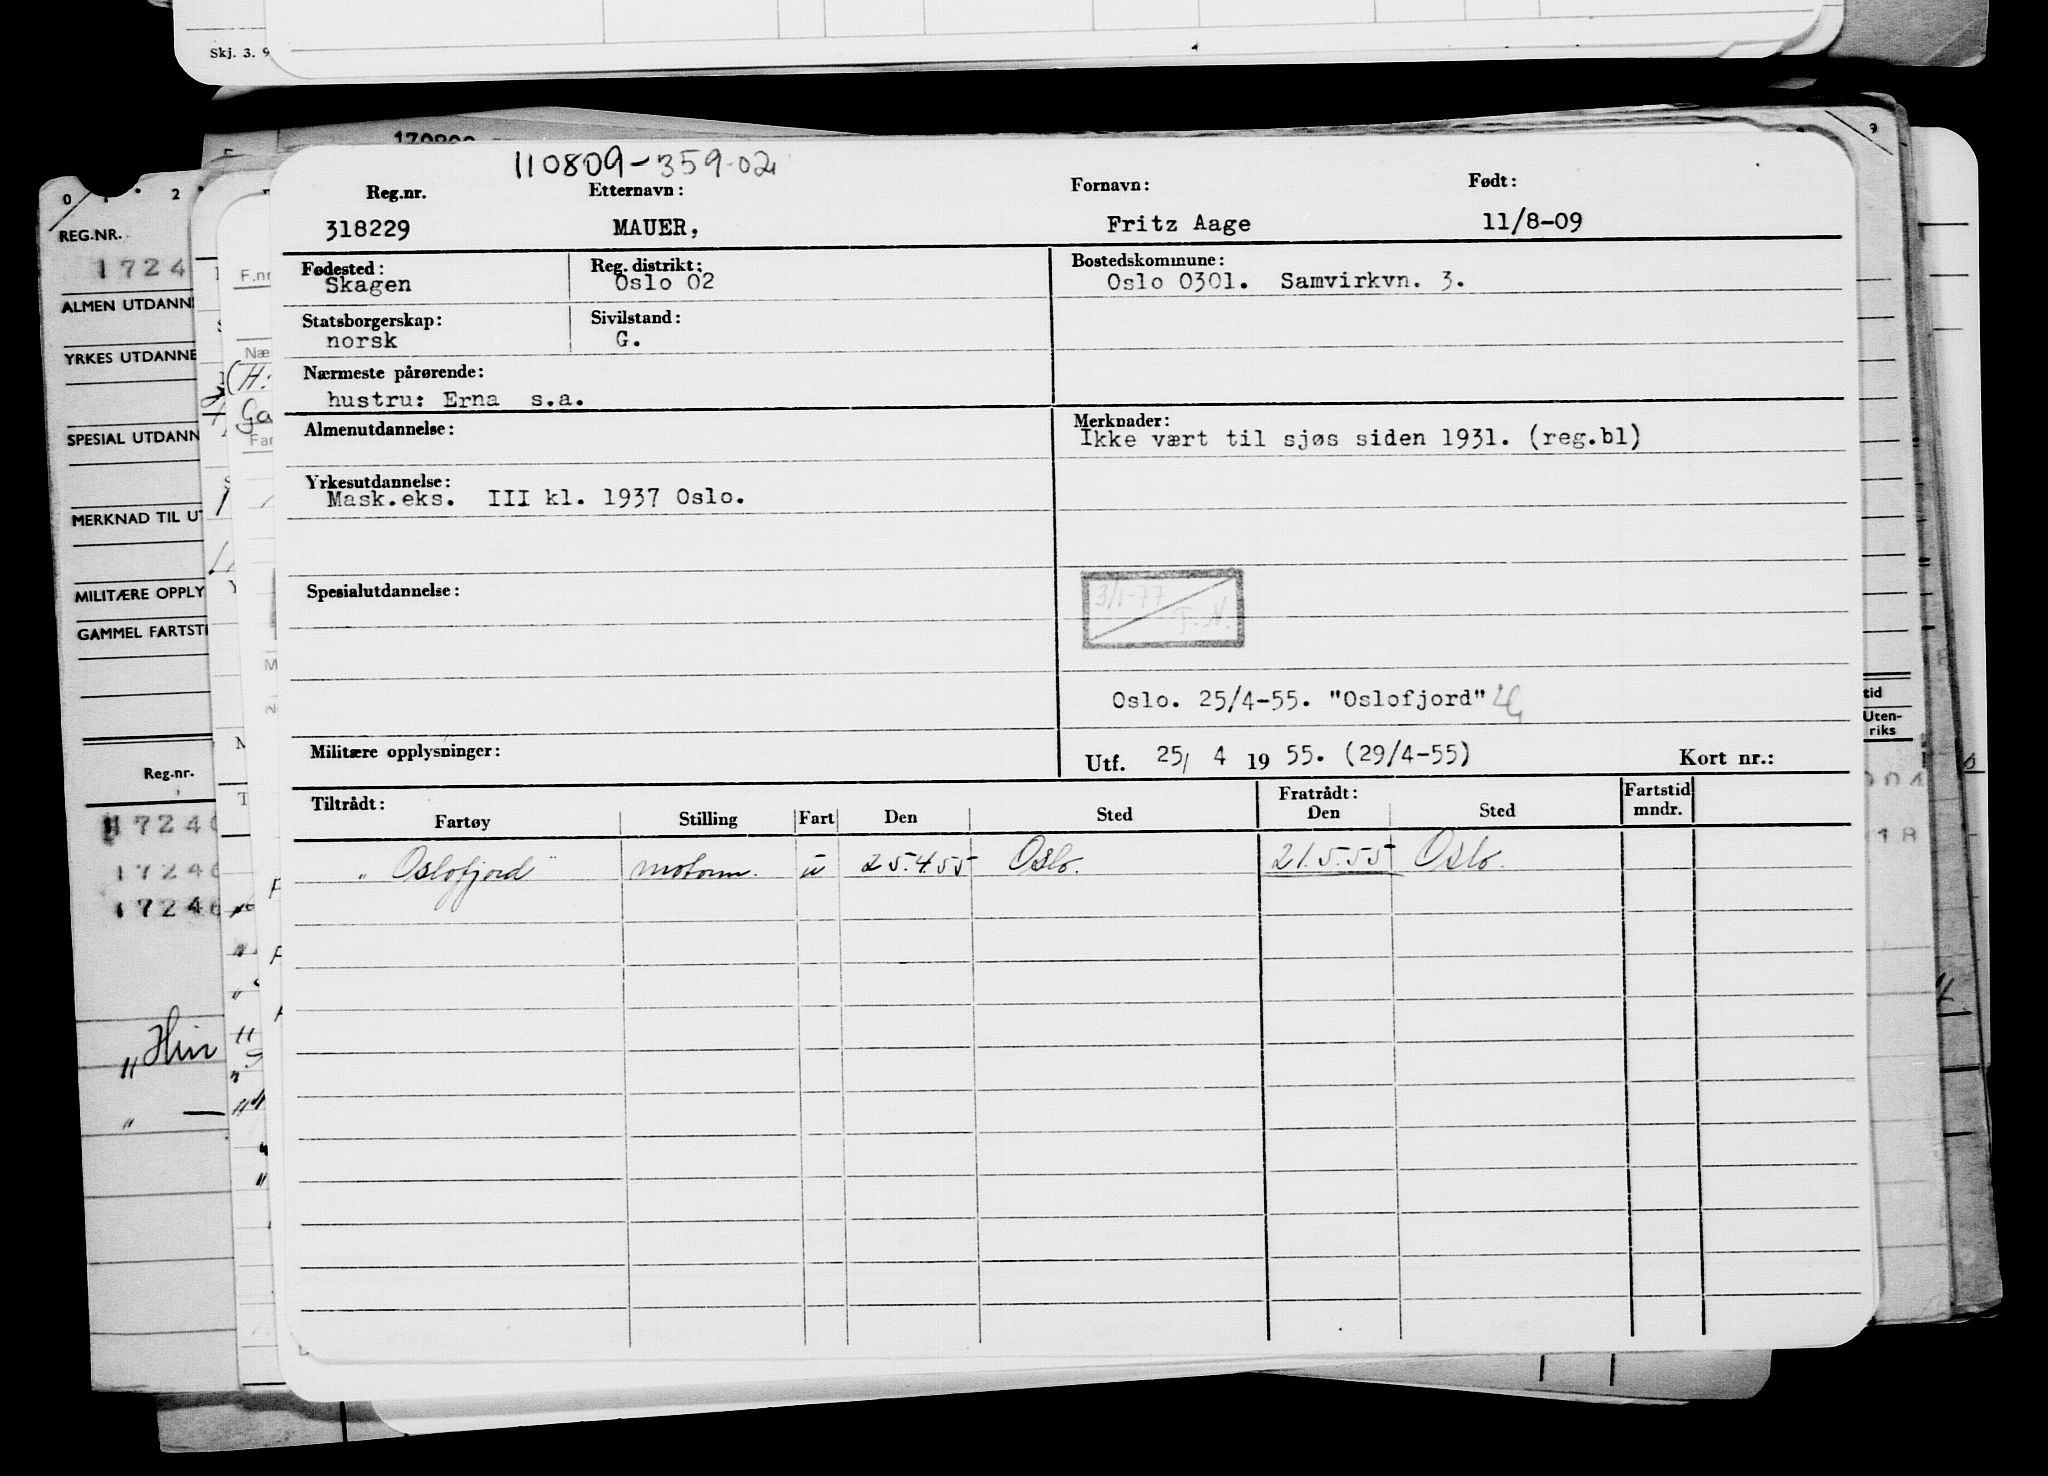 Skj. 3. 9
110809-359-02
Reg.nr. Etternavn: Fornavn: Født:
318229 MAUER, Fritz Aage 11/8-09
Fødested: Reg. distrikt: Bostedskommune:
Skagen Oslo 02 Oslo 0301. Samvirkvn. 3.
Statsborgerskap: Sivilstand:
norsk G.
Nærmeste pårørende:
hustru: Erna s.a.
Almenutdannelse: Merknader:
Ikke vært til sjøs siden 1931. (reg.bl)
Yrkesutdannelse:
Mask.eks. III kl. 1937 Oslo.
Spesialutdannelse:
3/1-77
T.N.
Oslo. 25/4-55. "Oslofjord"
Militære opplysninger: Utf. 25/ 4 19 55. (29/4-55) Kort nr.:
Tiltrådt: Fratrådt: Fartstid
Fartøy Stilling Fart Den Sted Den Sted mndr.
"Oslofjord" motorm. u 25.4.55 Oslo. 21.5.55 Oslo.
0 2
REG.NR.
1724
ALMEN UTDANN
YRKES UTDANNE
SPESIAL UTDANN
MERKNAD TIL UT
MILITÆRE OPPLY
GAMMEL FARTST
Reg.nr.
17240
17240
17240
"Hin
F.nr
Næ
(H:
Ga
Far
tid
Uten-
riks
9